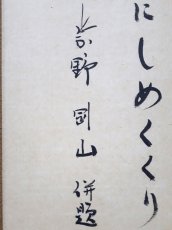 にしめくくり
野岡山併題